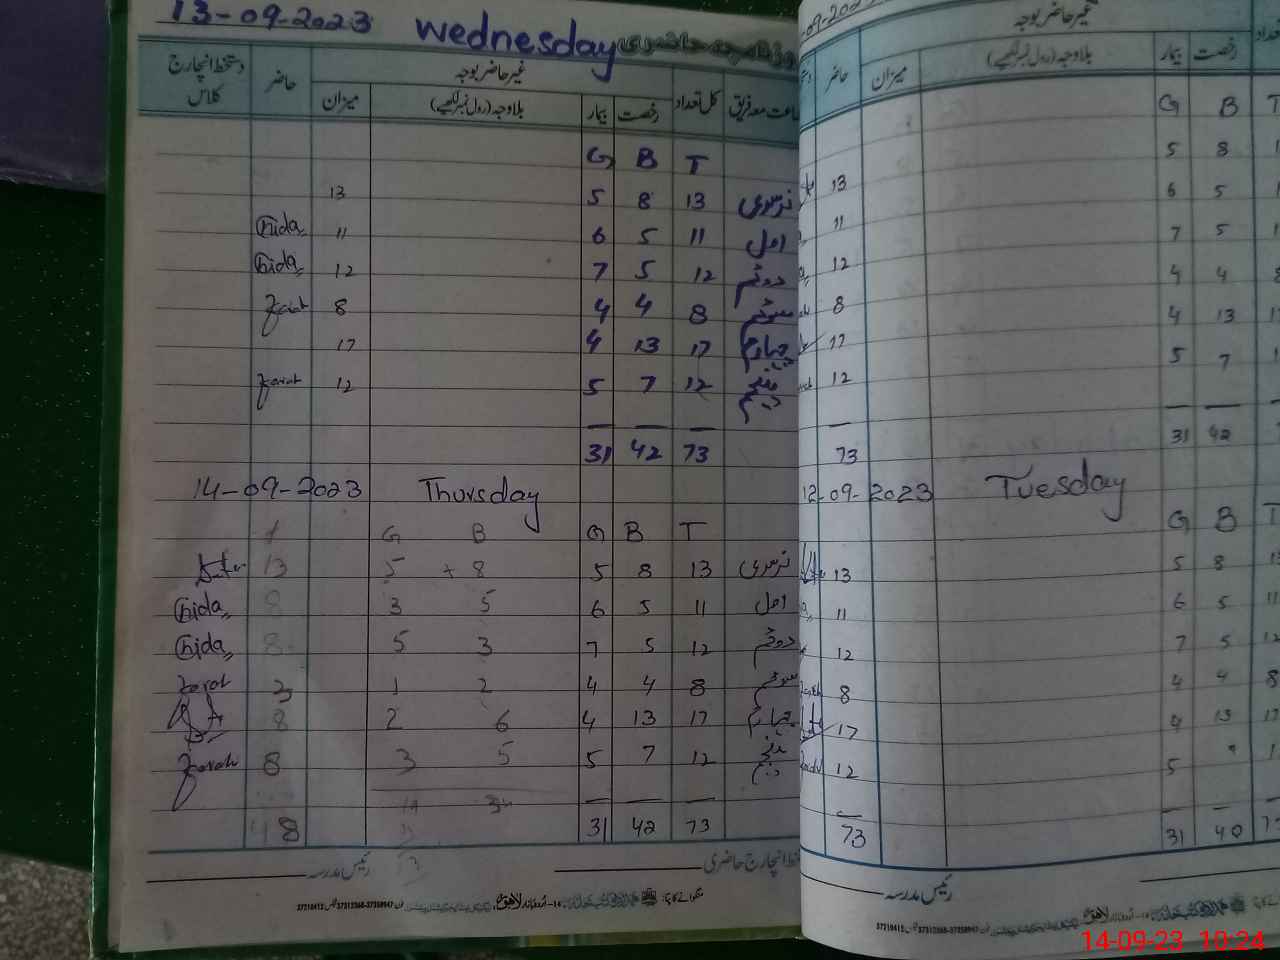 13-09-2023 Wednesday روزنامچہ حاضری
جماعت معہ فریق کل تعداد غیر حاضر بوجہ حاضر دستخط انچارج کلاس
رخصت بیمار بلاوجہ (رول نمبر لکھیے) میزان
G B T
13 5 8 13 نرسری
Nida 11 6 5 11 اول
Nida 12 7 5 12 دوئم
Farah 8 4 4 8 سوئم
17 4 13 17 چہارم
Farah 12 5 7 12 پنجم
31 42 73
14-09-2023 Thursday
G B G B T
13 5 + 8 5 8 13 نرسری
Nida 8 3 5 6 5 11 اول
Nida 8 5 3 7 5 12 دوئم
Farah 3 1 2 4 4 8 سوئم
8 2 6 4 13 17 چہارم
Farah 8 3 5 5 7 12 پنجم
48 31 42 73
دستخط انچارج حاضری رئیس مدرسہ
-09-2023
غیر حاضر بوجہ حاضر
رخصت بیمار بلاوجہ (رول نمبر لکھیے) میزان
G B T
13 5 8
11 6 5
12 7 5
8 4 4
17 4 13
12 5 7
73 31 42
12-09-2023 Tuesday
G B T
13 5 8
11 6 5 11
12 7 5 12
8 4 4 8
17 4 13 17
12 5
73 31 40
رئیس مدرسہ
14-09-23 10:24